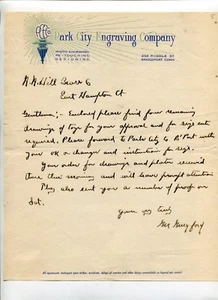 Park City Engraving Company
PHOTO ENGRAVING
RE-TOUCHING
DESIGNING
MIDDLE ST
BRIDGEPORT, CONN
N.N. Hill Brass Co
East Hampton Ct
Gentlemen:- Enclosed please find four remaining
drawings of toys for your approval and for sizes cuts
required. Please forward to Park City Co B'Port with
your OK or changes and instruction for size.
Your order for drawings and plates received
this morning and will have prompt attention
They also sent you a number of proofs on
1st.
Yours very truly
Geo